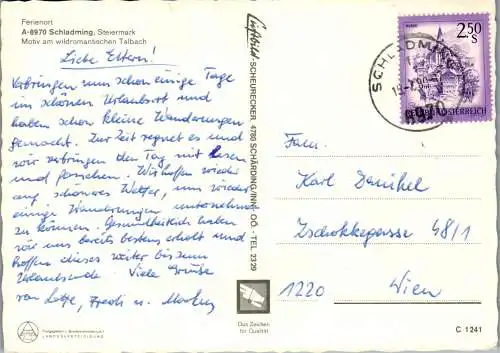 Ferienort
A-8970 Schladming, Steiermark
Motiv am wildromantischen Talbach
Liebe Eltern!
Verbringen nun schon einige Tage
im schönen Urlaubsort und
haben schon kleine Wanderungen
gemacht. Zur Zeit regnet es und
wir verbringen den Tag mit Lesen
und . Wir hoffen wieder
auf schönes Wetter, um wieder
einige Wanderungen unternehmen
zu können. Gesundheitlich haben
wir uns bereits bestens erholt und
hoffen dieses weiter bis zum
Urlaubsende. Viele Grüße
von , Fredi u. Markus
LANDESVERTEIDIGUNG
Luftbild-SCHEURECKER, 4780 SCHÄRDING/INN, OÖ. - TEL. 23 29
Das Zeichen
für Qualität
2.50
S
REPUBLIK ÖSTERREICH
SCHLADMING
8970
Fam.
Karl
Zschokkegasse 48/1
1220 Wien
C 1241